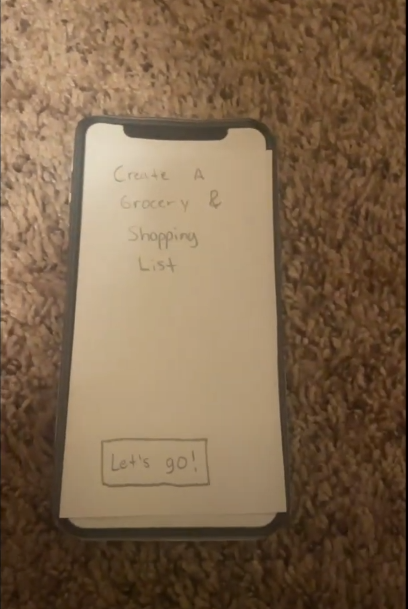 Create A
Grocery &
Shopping
List
Let's go!